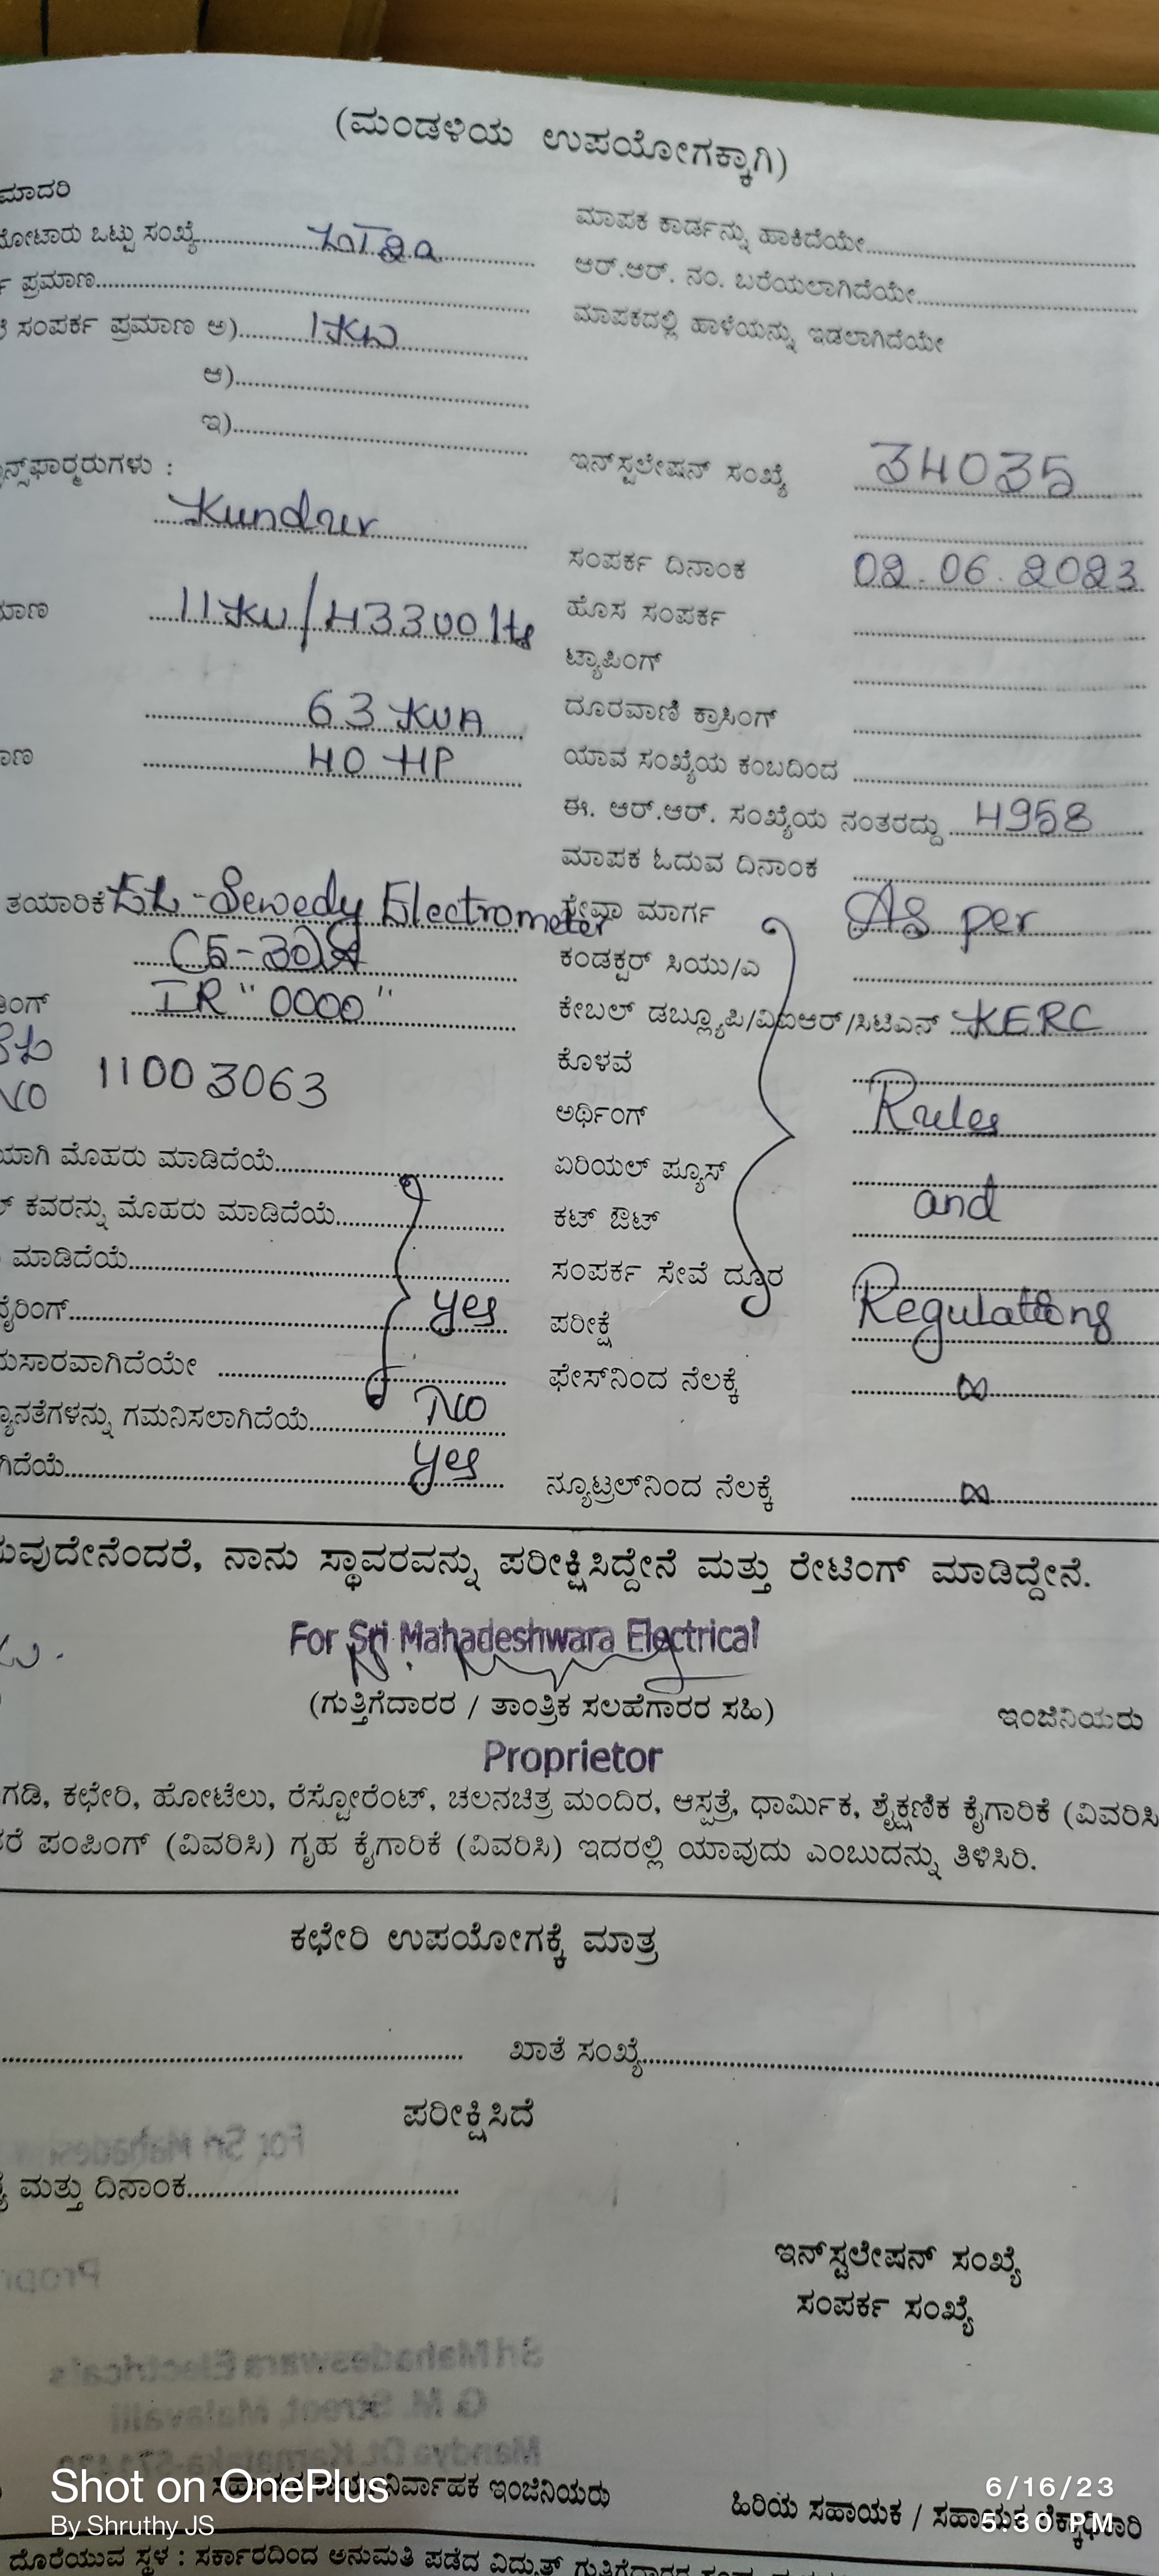 (ಮಂಡಳಿಯ ಉಪಯೋಗಕ್ಕಾಗಿ)
ಮಾದರಿ
ಮಾಪಕ ಕಾರ್ಡನ್ನು ಹಾಕಿದೆಯೇ
ಮೋಟಾರು ಒಟ್ಟು ಸಂಖ್ಯೆ
ಆರ್.ಆರ್. ನಂ. ಬರೆಯಲಾಗಿದೆಯೇ
ಪ್ರಮಾಣ
ಮಾಪಕದಲ್ಲಿ ಹಾಳೆಯನ್ನು ಇಡಲಾಗಿದೆಯೇ
ಸಂಪರ್ಕ ಪ್ರಮಾಣ ಅ) 1KW
ಆ)
ಇ)
ಇನ್‌ಸ್ಟಲೇಷನ್ ಸಂಖ್ಯೆ 34035
Kundur
ಸಂಪರ್ಕ ದಿನಾಂಕ 02.06.2023
11KV/433Volts ಹೊಸ ಸಂಪರ್ಕ
ಟ್ಯಾಪಿಂಗ್
63 KVA ದೂರವಾಣಿ ಕ್ರಾಸಿಂಗ್
40 HP ಯಾವ ಸಂಖ್ಯೆಯ ಕಂಬದಿಂದ
ಈ. ಆರ್.ಆರ್. ಸಂಖ್ಯೆಯ ನಂತರದ್ದು 4958
ಮಾಪಕ ಓದುವ ದಿನಾಂಕ
ತಯಾರಿಕೆ EL-Sewedy Electrometer ಸೇವಾ ಮಾರ್ಗ As per
C5-30A ಕಂಡಕ್ಟರ್ ಸಿಯು/ಎ
IR "0000" ಕೇಬಲ್ ಡಬ್ಲ್ಯೂಪಿ/ವಿಐಆರ್/ಸಿಟಿಎನ್ KERC
ಕೊಳವೆ
NO 11003063
ಅರ್ಥಿಂಗ್ Rules
ಮೊಹರು ಮಾಡಿದೆಯೆ ಏರಿಯಲ್ ಫ್ಯೂಸ್
ಕವರನ್ನು ಮೊಹರು ಮಾಡಿದೆಯೆ ಕಟ್ ಔಟ್ and
ಮಾಡಿದೆಯೆ ಸಂಪರ್ಕ ಸೇವೆ ದ್ದೂರ
ವೈರಿಂಗ್ yes ಪರೀಕ್ಷೆ Regulations
ಅನುಸಾರವಾಗಿದೆಯೇ ಫೇಸ್‌ನಿಂದ ನೆಲಕ್ಕೆ ∞
ನ್ಯೂನತೆಗಳನ್ನು ಗಮನಿಸಲಾಗಿದೆಯೆ NO
yes ನ್ಯೂಟ್ರಲ್‌ನಿಂದ ನೆಲಕ್ಕೆ ∞
ನಾನು ಸ್ಥಾವರವನ್ನು ಪರೀಕ್ಷಿಸಿದ್ದೇನೆ ಮತ್ತು ರೇಟಿಂಗ್ ಮಾಡಿದ್ದೇನೆ.
For Sri Mahadeshwara Electrical
(ಗುತ್ತಿಗೆದಾರರ / ತಾಂತ್ರಿಕ ಸಲಹೆಗಾರರ ಸಹಿ) ಇಂಜಿನಿಯರು
Proprietor
ಕಛೇರಿ, ಹೋಟೆಲು, ರೆಸ್ಟೋರೆಂಟ್, ಚಲನಚಿತ್ರ ಮಂದಿರ, ಆಸ್ಪತ್ರೆ, ಧಾರ್ಮಿಕ, ಶೈಕ್ಷಣಿಕ ಕೈಗಾರಿಕೆ (ವಿವರಿಸಿ
ಪಂಪಿಂಗ್ (ವಿವರಿಸಿ) ಗೃಹ ಕೈಗಾರಿಕೆ (ವಿವರಿಸಿ) ಇದರಲ್ಲಿ ಯಾವುದು ಎಂಬುದನ್ನು ತಿಳಿಸಿರಿ.
ಕಛೇರಿ ಉಪಯೋಗಕ್ಕೆ ಮಾತ್ರ
ಖಾತೆ ಸಂಖ್ಯೆ
ಪರೀಕ್ಷಿಸಿದೆ
ಮತ್ತು ದಿನಾಂಕ
ಇನ್‌ಸ್ಟಲೇಷನ್ ಸಂಖ್ಯೆ
ಸಂಪರ್ಕ ಸಂಖ್ಯೆ
Shot on OnePlus
By Shruthy JS
6/16/23
5:30 PM
ಇಂಜಿನಿಯರು
ಹಿರಿಯ ಸಹಾಯಕ / ಸಹಾಯಕ ಲೆಕ್ಕಾಧಿಕಾರಿ
ದೊರೆಯುವ ಸ್ಥಳ : ಸರ್ಕಾರದಿಂದ ಅನುಮತಿ ಪಡೆದ ವಿದ್ಯುತ್